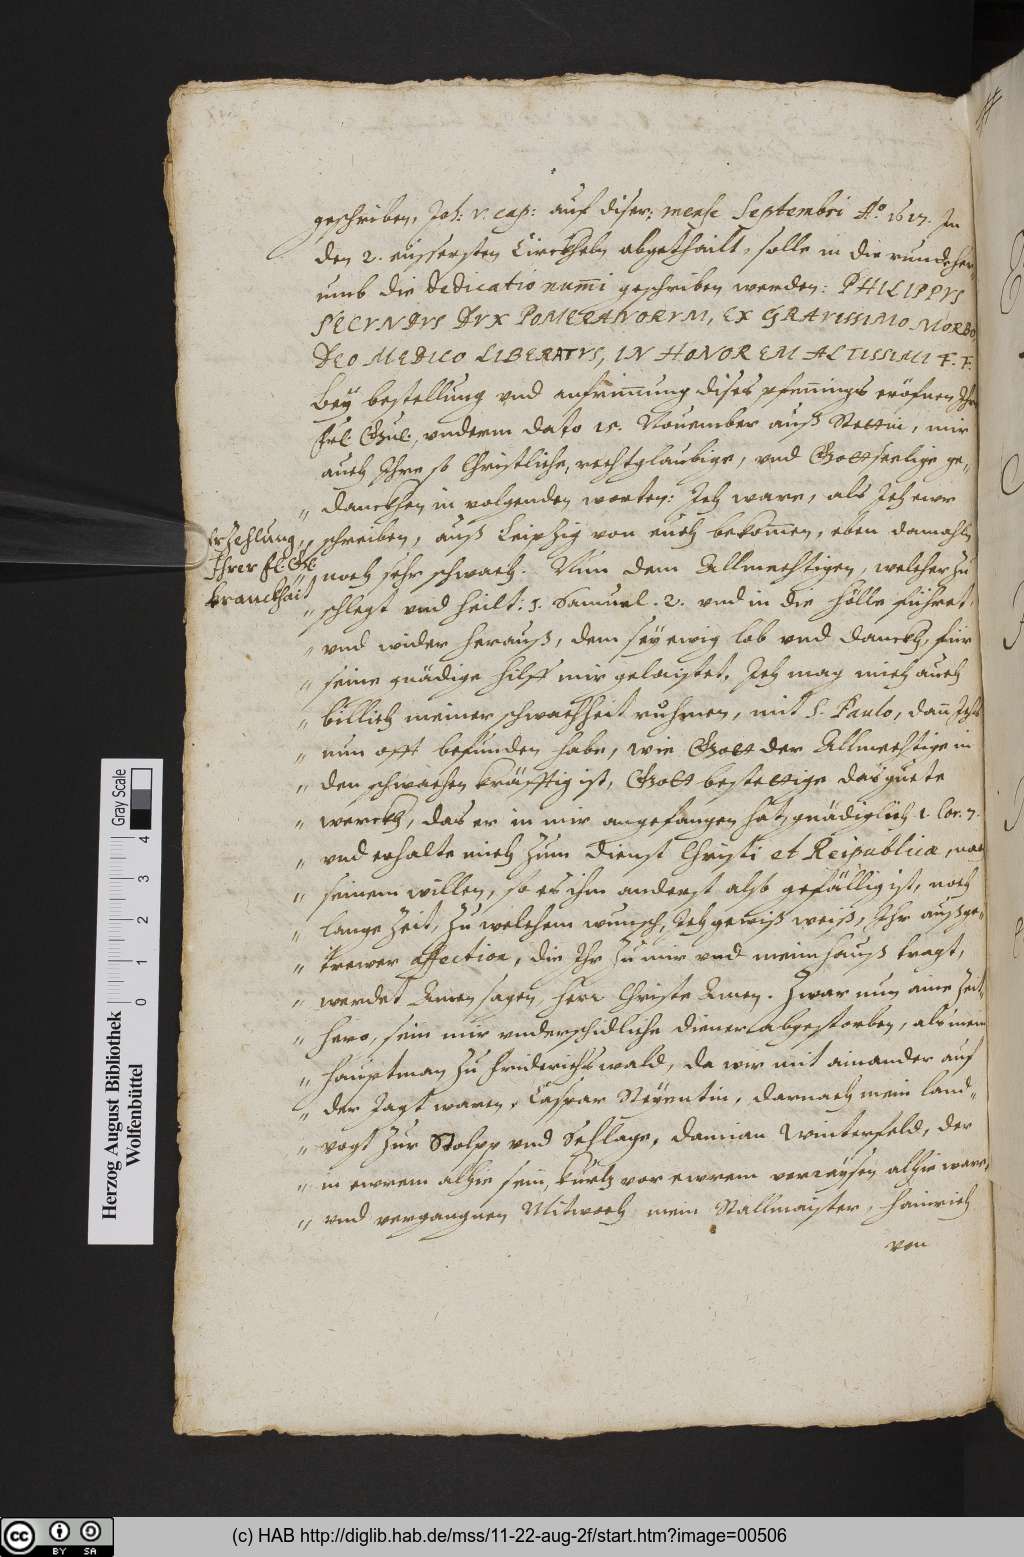 geschriben, Joh: v. cap: auf diser; mense Septembri Aº. 1617. In
den 2. eüssersten Circkheln abgethailt, solle in die runde her„
umb die Dedicatio num̅i geschriben werden: PHILIPPVS
SECVNDVS DVX POMERANORVM, EX GRAVISSIMO MORBO,
DEO MEDICO LIBERATVS, IN HONOREM ALTISSIMI F. F.
Bey bestellung vnd anfrim̅ung dises pfennings eröfnen Ihr
Frl. Gnl. vnderm dato 15. Nouember auß Stettin, mir
auch Ihre so Christliche, rechtglaubige, vnd Gottseelige ge„
„ danckhen in volgenden worten: Ich ware, als Ich ewr
Erzehlung
Ihrer fl: Gl:
kranckhait
„ schreiben, auß Leipzig von euch bekom̅en, eben damahln
„ noch sehr schwach. Nun dem Allmechtigen, welcher zu
„ schlegt vnd heilt: 1. Samuel. 2. vnd in die hölle führet,
„ vnd wider herauß, dem sey ewig lob vnd danckh, für
„ seine gnädige hilff mir gelaistet. Ich mag mich auch
„ billich meiner schwachheit ruhmen, mit S. Paulo, dan̅ Ichs
„ nun offt befunden habe, wie Gott der Allmechtige in
„ den schwachen kräfftig ist, Gott bestettige das guete
„ werckh, das er in mir angefangen hat, gnädiglich 1 Cor. 7.
„ vnd erhalte mich zum dienst Christi et Reipublicæ, nach
„ seinem willen, so es ihm anderst also gefällig ist, noch
„ lange zeit, Zu welchem wunsch, Ich gewiß weiß, Ihr auß ge„
„ trewer affection, die Ihr zu mir vnd meim hauß tragt,
„ werdet Amen sagen, herr Christe Amen. Zwar nun eine zeit„
„ hero, sein mir vnderschidliche diener abgestorben, als mein
„ hauptman zu Friderichswald, da wir mit ainander auf
„ der Jagt waren, Caspar Steyentin, darnach mein land„
„ vogt zur Stolpp vnd Schlage, Damian Winterfeld, der
„ in ewrem alhie sein, kurtz vor ewrem verraysen alhie ware,
„ vnd vergangnen Mitwoch mein Stallmaister, Hainrich
von
Herzog August Bibliothek
Wolfenbüttel
Gray Scale
0 1 2 3 4
(c) HAB http://diglib.hab.de/mss/11-22-aug-2f/start.htm?image=00506
CC BY SA